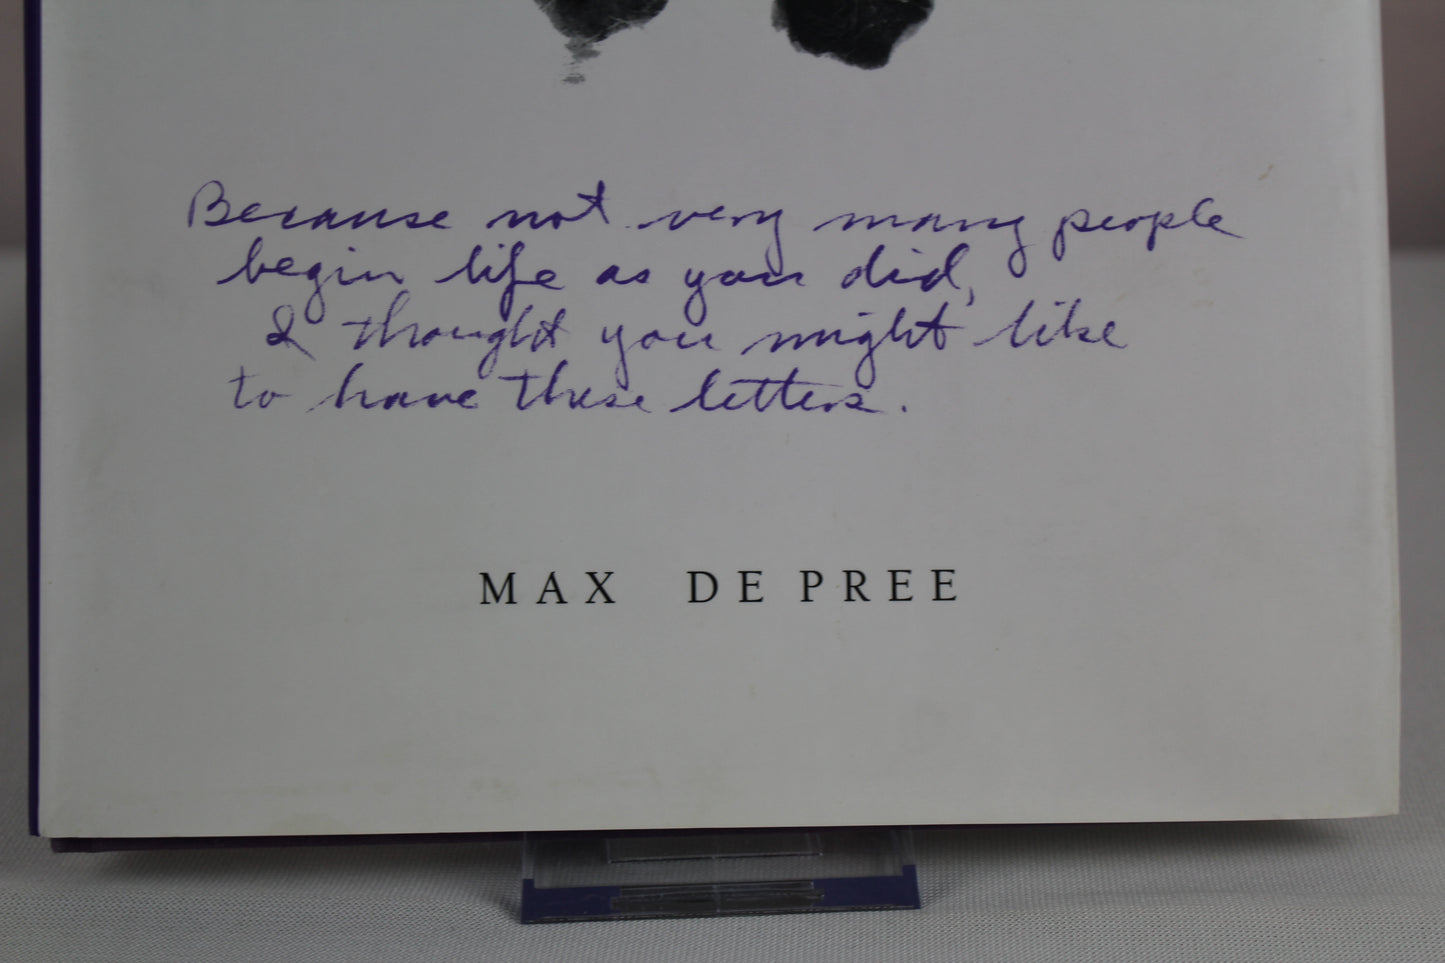 Because not very many people
begin life as you did,
I thought you might like
to have these letters.
MAX DE PREE